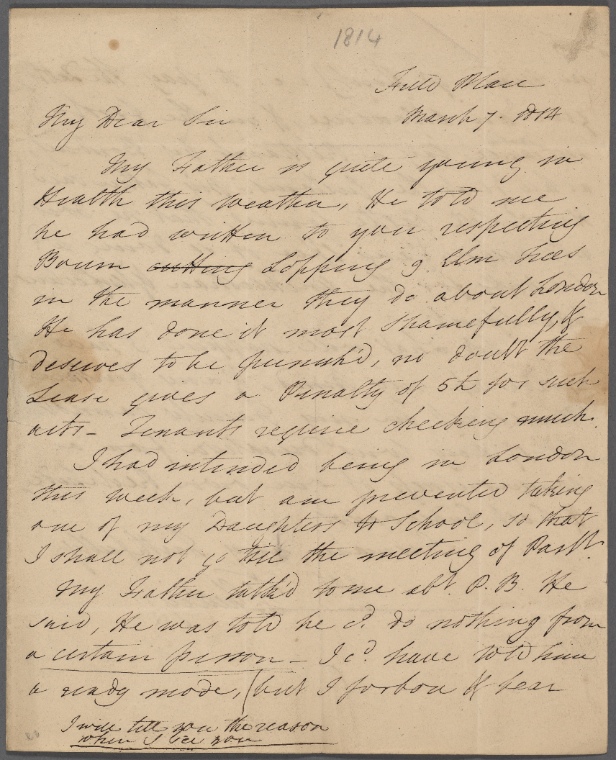 1814
Field Place
March 7. 1814
My Dear Sir
My Father is quite young in
Health this weather, He told me
he had written to you respecting
Bourn cutting Lopping 9 Elm trees
in the manner they do about London
He has done it most shamefully, &
deserves to be punish'd, no doubt the
Lease gives a Penalty of 5£ for such
acts - Tenants require checking much.
I had intended being in London
this week, but am prevented taking
one of my Daughters to School, so that
I shall not go till the meeting of Parlt.
My Father talk'd to me abt. P. B. He
said, He was told he cd. do nothing from
a certain person - I cd. have told him
a ready mode, (but I forbore & fear
I will tell you the reason
when I see you